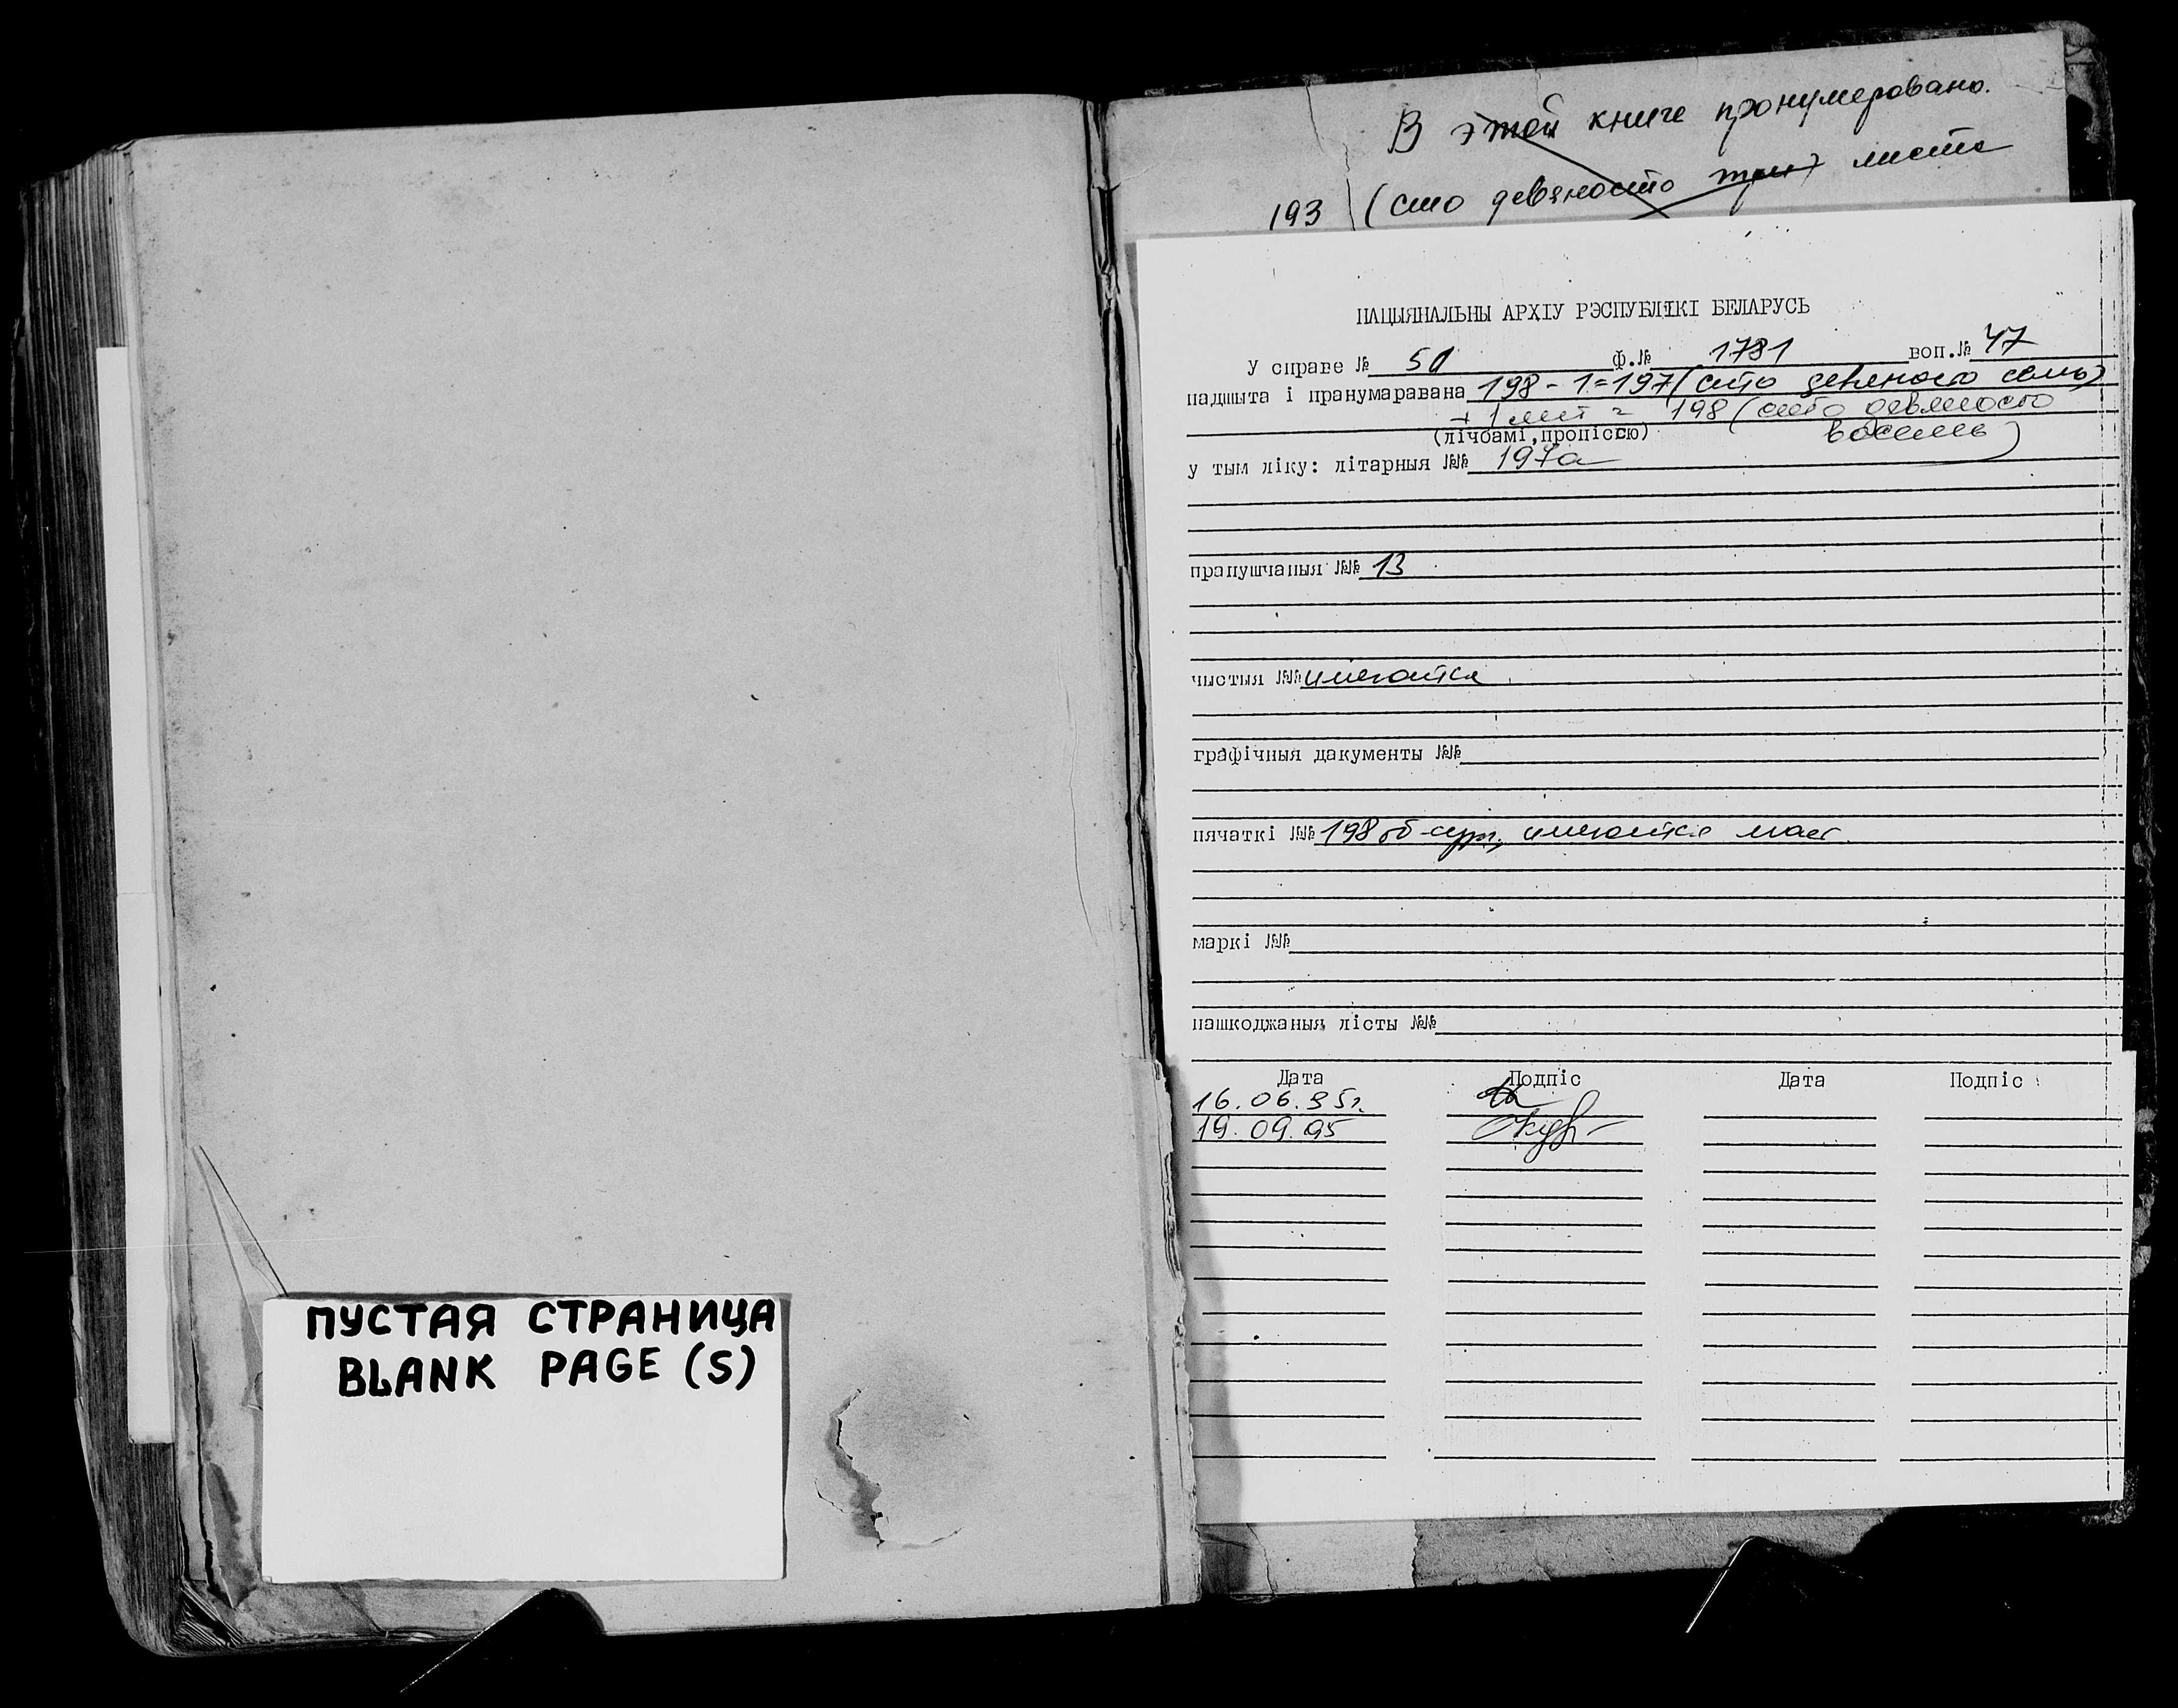 В этой книге пронумеровано.
193 (сто девяносто три) листа
НАЦЫЯНАЛЬНЫ АРХІУ РЭСПУБЛІКІ БЕЛАРУСЬ
У справе № 51 ф.№ 1781 воп.№ 47
падшыта і пранумаравана 198-1=197 (сто девяносто семь)
+ 1 лит = 198 (сто девяносто
(лічбамі,пропіссю) восемь)
у тым ліку: літарныя №№ 197а
прапушчаныя №№ 13
чыстыя №№ имеются
графічныя дакументы №№
пячаткі №№ 198 об-сург., имеются маст.
маркі №№
пашкоджаныя лісты №№
Дата Подпіс Дата Подпіс
16.06.95г.
19.09.95
ПУСТАЯ СТРАНИЦА
BLANK PAGE (S)